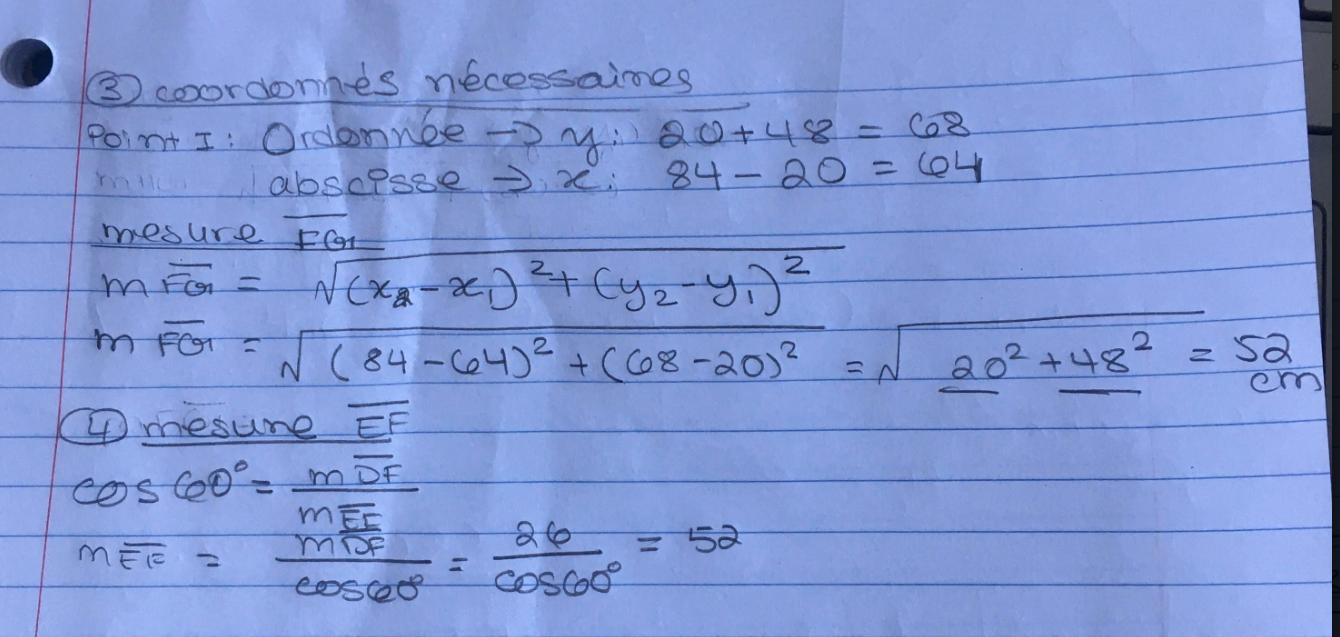 ③ coordonnés nécessaires
Point I : Ordonnée → y: 20+48 = 68
abscisse → x: 84 - 20 = 64
mesure F̅G̅
m F̅G̅ = √(x₂-x₁)²+(y₂-y₁)²
m F̅G̅ = √(84-64)²+(68-20)² = √20²+48² = 52 cm
④ mesure E̅F̅
cos 60° = m D̅F̅ / m E̅F̅
m E̅F̅ = m D̅F̅ / cos60° = 26 / cos60° = 52